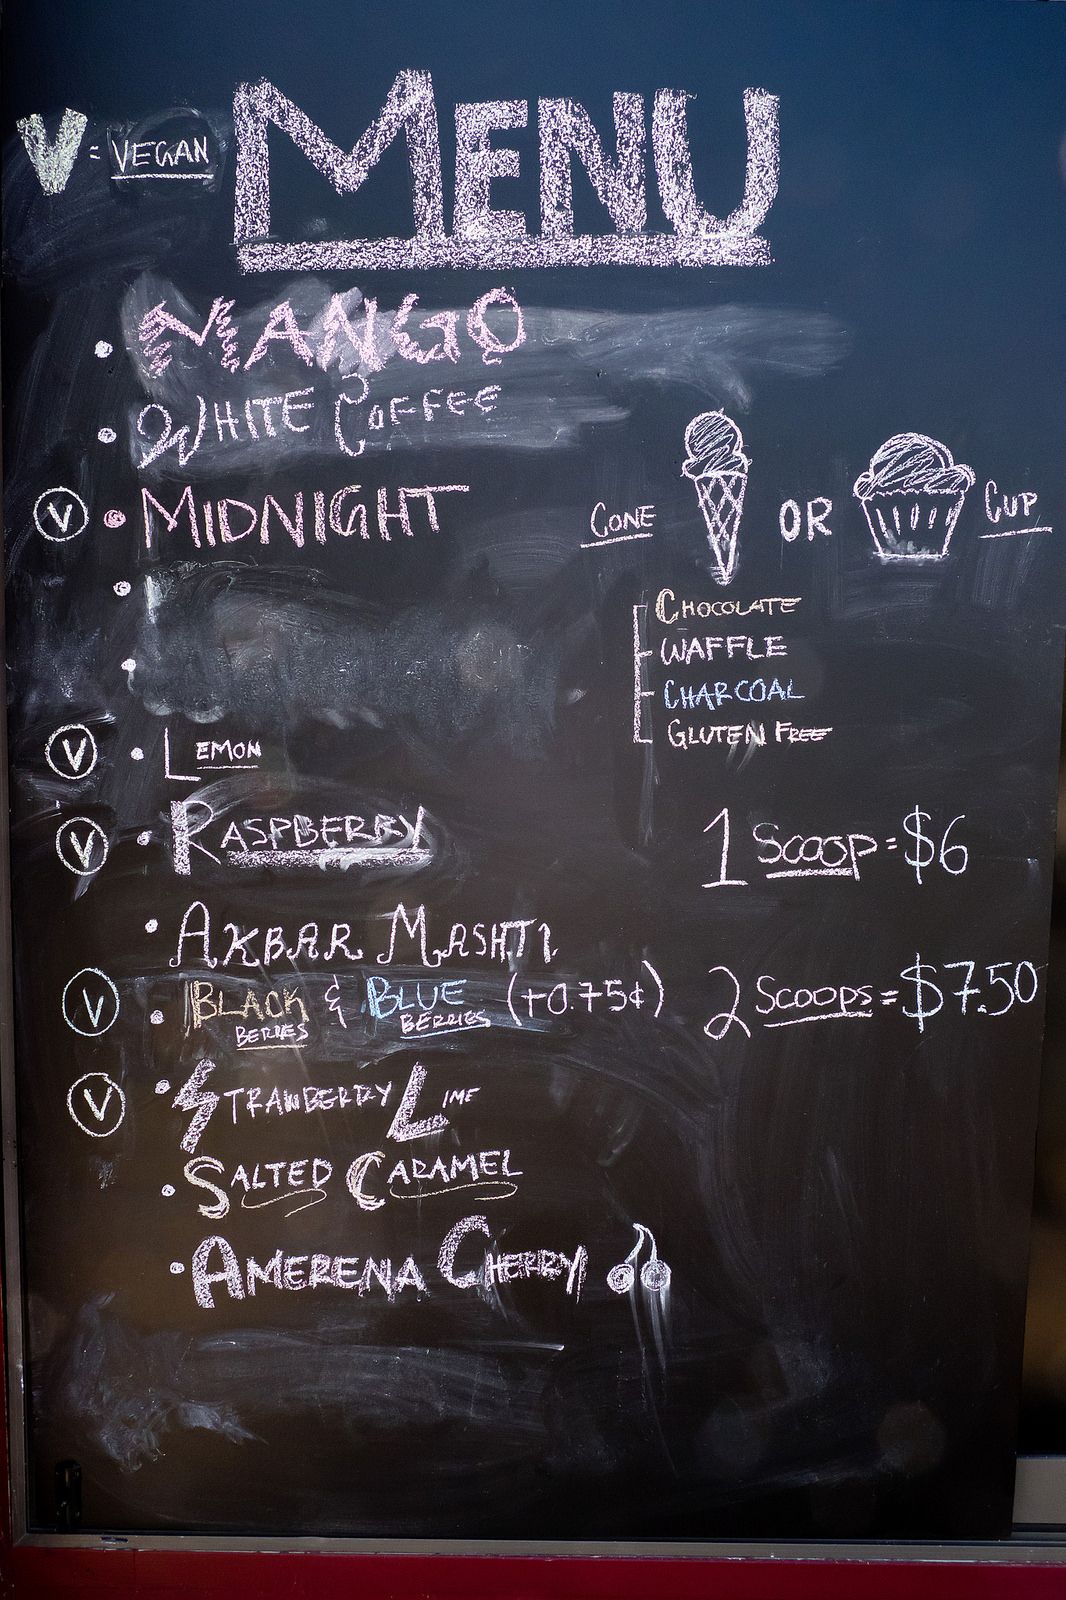 V = VEGAN
MENU
• MANGO
• WHITE COFFEE
V • MIDNIGHT
•
•
V • LEMON
V • RASPBERRY
• AKBAR MASHTI
V • BLACK BERRIES & BLUE BERRIES (+0.75¢)
V • STRAWBERRY LIME
• SALTED CARAMEL
• AMERENA CHERRY
CONE OR CUP
CHOCOLATE
WAFFLE
CHARCOAL
GLUTEN FREE
1 SCOOP = $6
2 SCOOPS = $7.50